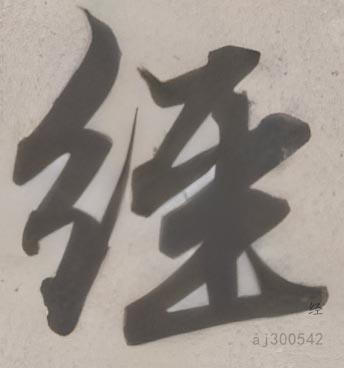 经
经
aj300542